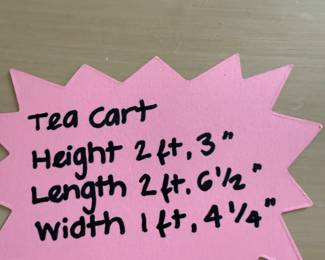 Tea Cart
Height 2 ft, 3"
Length 2 ft. 6 1/2"
Width 1 ft, 4 1/4"